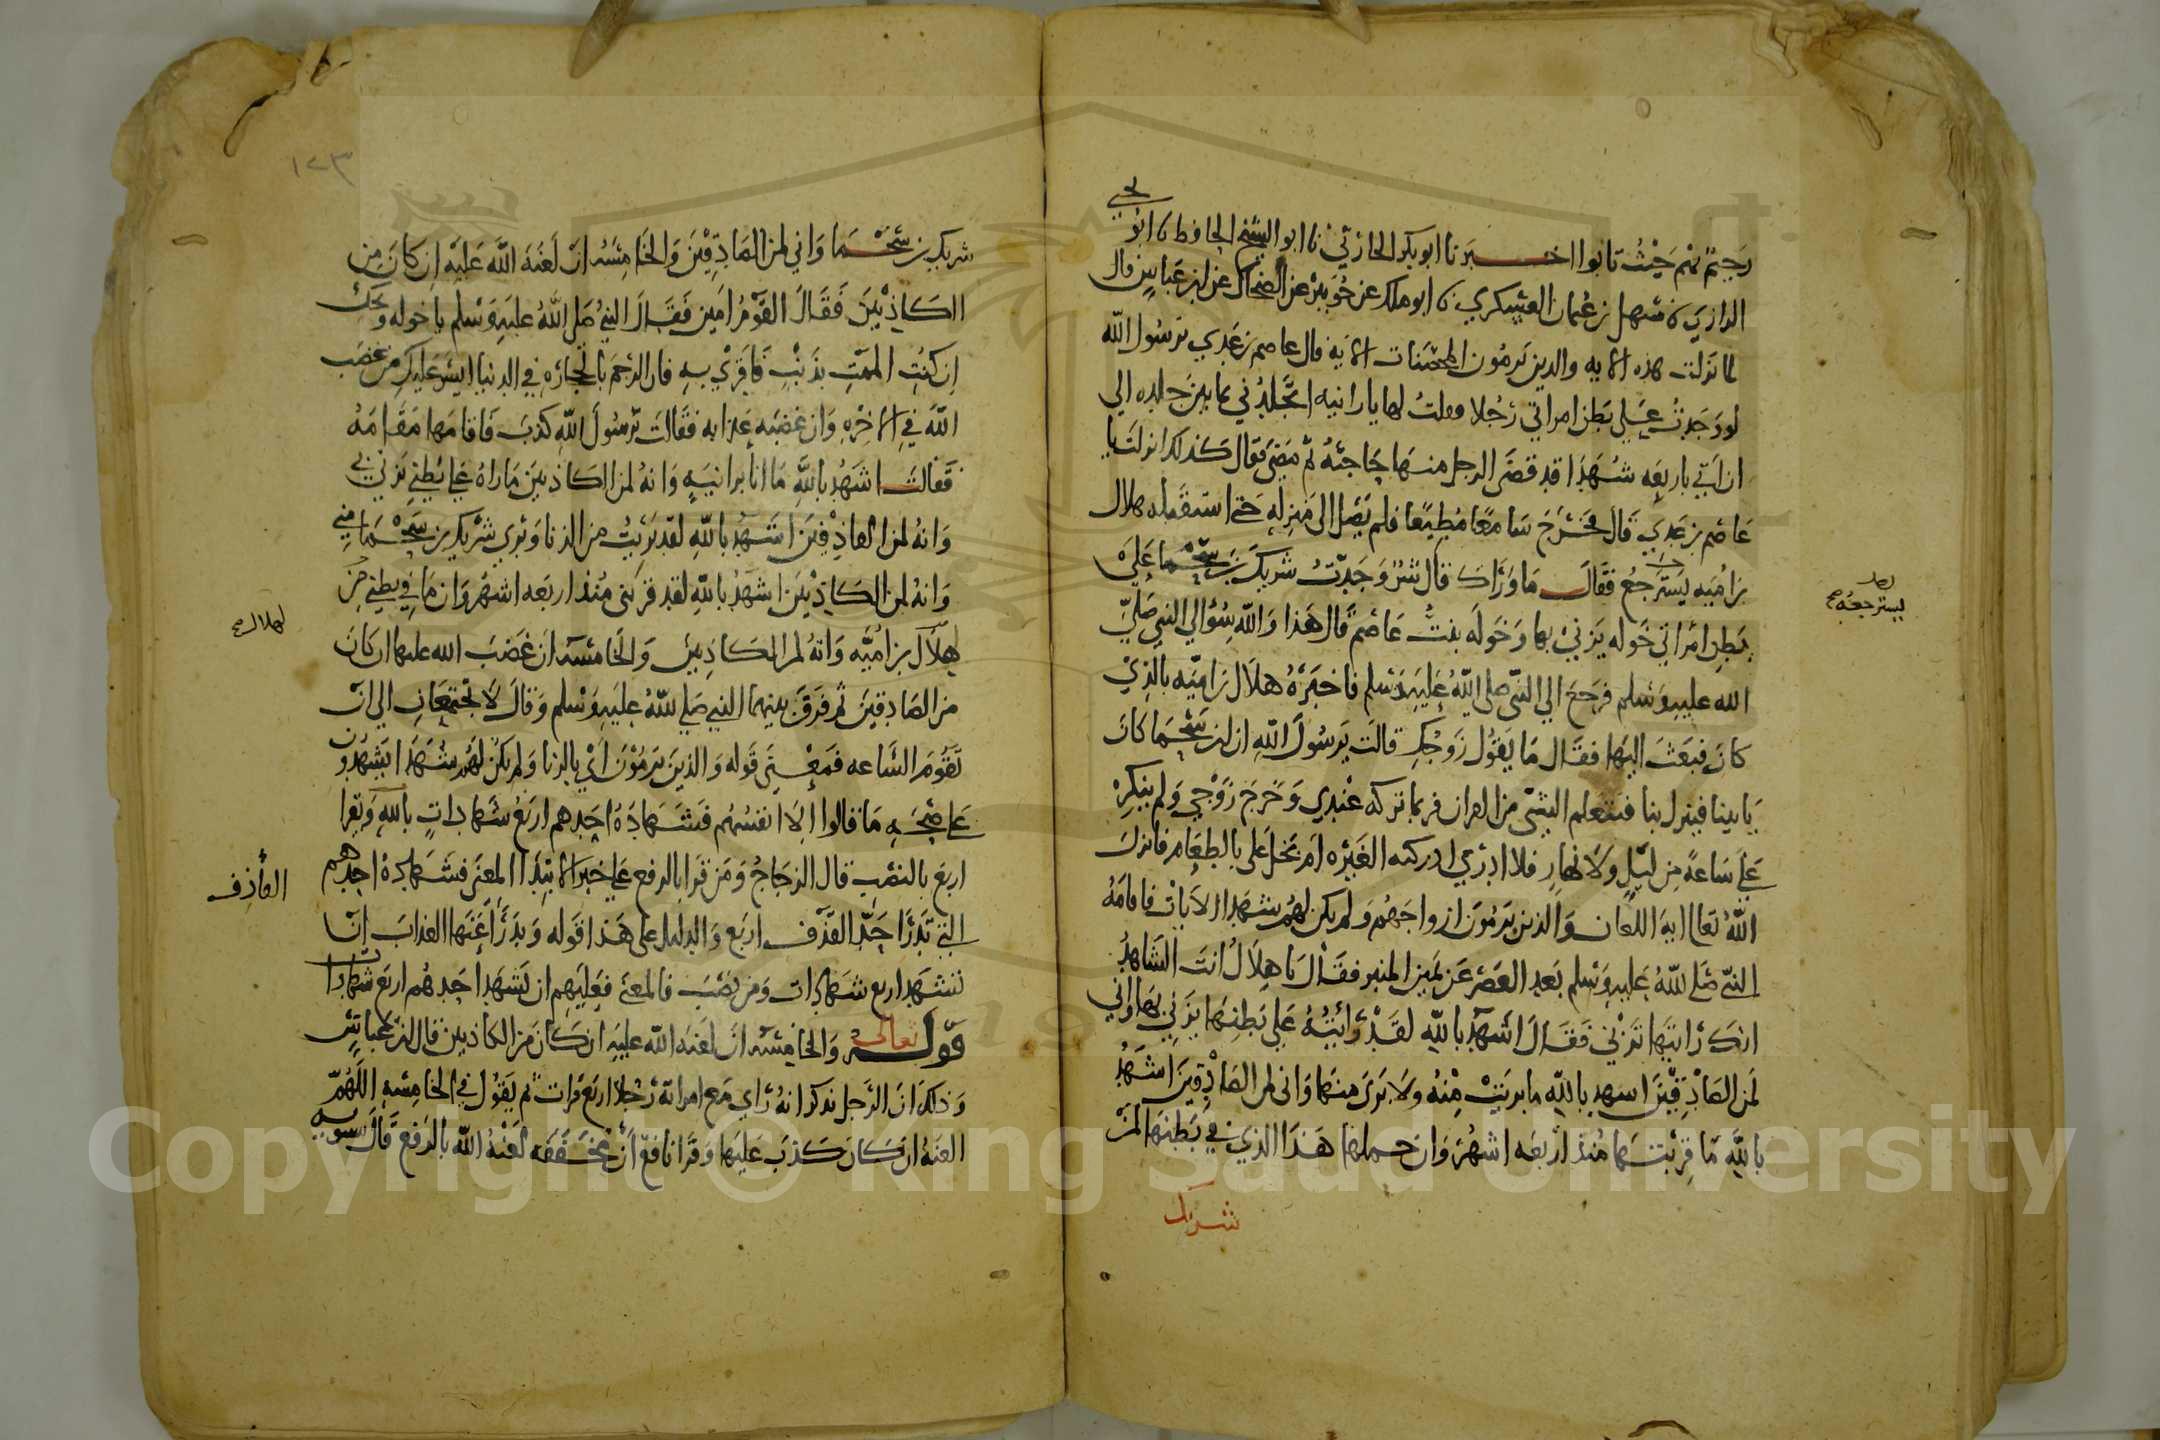 لحيي
رجمتم بهم حيث تابوا اخبرنا ابو بكر الحارثي نا ابو الشيخ الحافظ نا ابو
الرازي نا سهل بن عثمان العسكري نا ابو ملك عن جويبر عن الضحاك عن ابن عباس قال
لما نزلت هذه الايه والذين يرمون المحصنات الايه قال عاصم بن عدي يرسول الله
لو وجدت علي بطن امراتي رجلا فقلت لها يا زانيه اتجلدني ثمانين جلده الي
ان اتي باربعه شهدا قد قضى الرجل منها حاجته ثم مضى فقال كذلك انزلت يا
عاصم بن عدي قال فخرج سامعا مطيعا فلم يصل الى منزله حتى استقبله هلال
بن اميه يسترجع فقال ما وراك قال شر وجدت شريك بن سحما علي
بطن امراتي خوله يزني بها وخوله بنت عاصم قال هذا والله سؤالي النبي صلي
الله عليه وسلم فرجع الي النبي صلى الله عليه وسلم فاخبره هلال بن اميه بالذي
كان فبعث اليها فقال ما يقول زوجك قالت يرسول الله ان ابن سحما كان
ياتينا فينزل بنا فيتعلم الشي من القران فربما تركه عندي وخرج زوجي ولم ينكره
علي ساعة من ليل ولا نهار فلا ادري ادركته الغيره ام بخل علي بالطعام فانزل
الله تعالى اية اللعان والذين يرمون ازواجهم ولم يكن لهم شهدا الايات فاقامه
النبي صلى الله عليه وسلم بعد العصر عن يمين المنبر فقال يا هلال انت الشاهد
انك رايتها تزني فقال اشهد بالله لقد رايته علي بطنها يزني بها واني
لمن الصادقين اشهد بالله ما بريت منه ولا بري منها واني لمن الصادقين اشهد
بالله ما قربتها منذ اربعه اشهر وان حملها هذا الذي في بطنها لمن
شريك
يسترجعه صح
١٢٣
شريك بن سحما واني لمن الصادقين والخامسه ان لعنة الله عليه ان كان من
الكاذبين فقال القوم امين فقال النبي صلى الله عليه وسلم يا خوله ويحك
ان كنت الممت بذنب فاقري به فان الرجم بالحجاره في الدنيا ايسر عليك من غضب
الله في الاخره وان غضبه عذابه فقالت يرسول الله كذب فاقامها مقامه
فقالت اشهد بالله ما انا بزانيه وانه لمن الكاذبين ما راه علي بطني يزني بي
وانه لمن الكاذبين اشهد بالله لقد بريت من الزنا وبري شريك بن سحما مني
وانه لمن الكاذبين اشهد بالله لقد قربني منذ اربعه اشهر وان ما في بطني من
هلال بن اميه وانه لمن الكاذبين والخامسه ان غضب الله عليها ان كان
من الصادقين ثم فرق بينهما النبي صلي الله عليه وسلم وقال لا يجتمعان الي ان
تقوم الساعه فمعني قوله والذين يرمون اي بالزنا ولم يكن لهم شهدا يشهدون
على صحه ما قالوا الا انفسهم فشهادة احدهم اربع شهادات بالله ويقرا
اربع بالنصب قال الزجاج ومن قرا بالرفع على خبر الابتدا المعنى فشهادة احدهم
التي تدرا حد القذف اربع والدليل على هذا قوله ويدرا عنها العذاب ان
تشهد اربع شهادات ومن نصب فالمعنى فعليهم ان يشهد احدهم اربع شهادات
قوله تعالى والخامسه ان لعنه الله عليه ان كان من الكاذبين قال ابن عباس
وذلك ان الرجل يذكر انه راي مع امراته رجلا اربع مرات ثم يقول في الخامسه اللهم
العنه ان كان كذب عليها وقرا نافع ان مخففه لعنة الله بالرفع قال سيبويه
القاذف